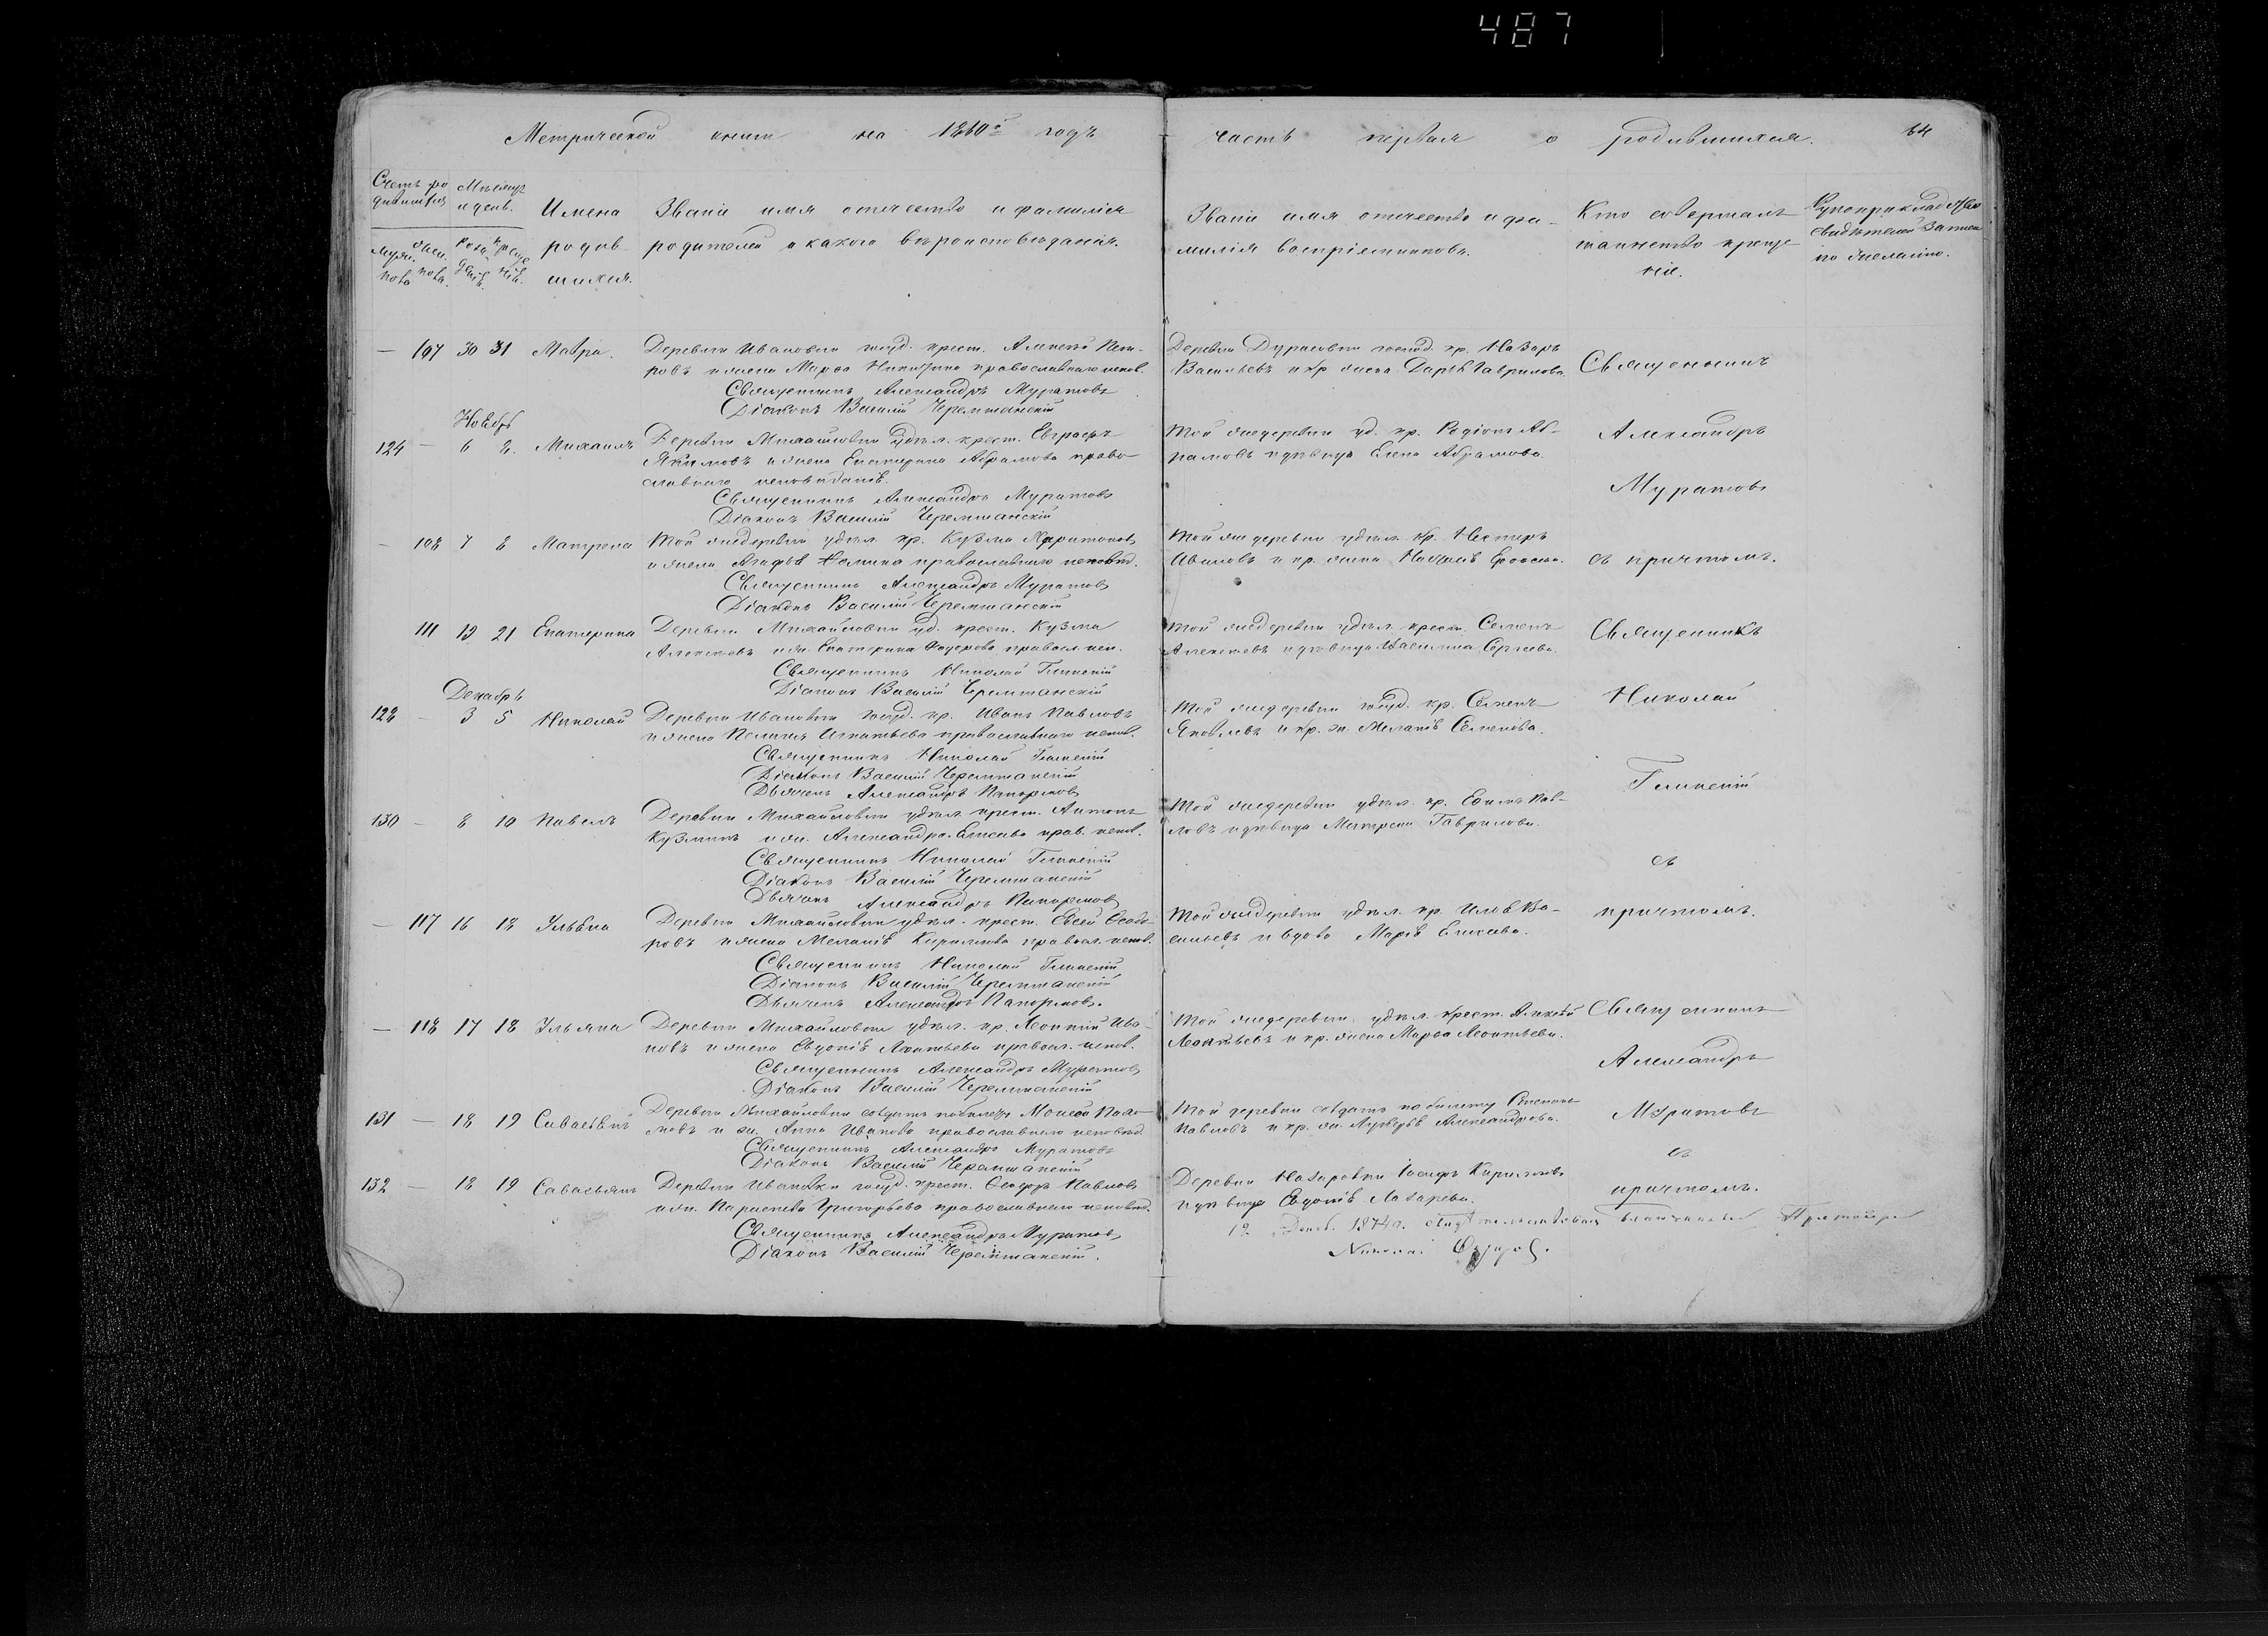 487
Метрической книги на 1860й годъ часть первая о родившихся. 64
Счетъ ро
дившихся
Мѣсяцъ
и день.
Имена
родив
шихся.
Званіе имя отчество и фамилія
родителей и какого вѣроисповѣданія.
Званіе имя отчество и фа-
милія воспріемниковъ.
Кто совершалъ
таинство креще
нія.
Рукоприкладство
свидѣтелей записи
по желанію.
— 107 30 31 Мавра.
Деревни Ивановки госуд. крест. Алексѣй Пет-
ровъ и жена Марѳа Никитина православнаго испов.
Священникъ Александръ Муратовъ
Діаконъ Василій Черемшанскій
Деревни Дурасовки госуд. кр. Назаръ
Васильевъ и кр. жена Дарья Гаврилова.
Священникъ
Ноябрь
124 — 6 8. Михаилъ
Деревни Михайловки удѣл. крест. Евграфъ
Якимовъ и жена Екатерина Абрамова право-
славнаго исповѣданія.
Священникъ Александръ Муратовъ
Діаконъ Василій Черемшанскій
Той же деревни уд. кр. Родіонъ Аб-
рамовъ и дѣвица Елена Абрамова.
Александръ
Муратовъ
— 108 7 8 Матрена
Той же деревни удѣл. кр. Кузма Харитоновъ
и жена Агафья Фомина православнаго исповѣд.
Священникъ Александръ Муратовъ
Діаконъ Василій Черемшанскій
Той же деревни удѣл. кр. Несторъ
Ивановъ и кр. жена Наталья
съ причтомъ.
111 19 21 Екатерина
Деревни Михайловки уд. крест. Кузма
Алексѣевъ и ж. Екатерина Федорова правосл. исп.
Священникъ Николай Глинскій
Діаконъ Василій Черемшанскій
Той же деревни удѣл. крест. Семенъ
Алексѣевъ и дѣвица Василиса Сергѣева.
Священникъ
Декабрь
128 — 3 5 Николай
Деревни Ивановки госуд. кр. Иванъ Павловъ
и жена Пелагія Игнатьева православнаго испов.
Священникъ Николай Глинскій
Діаконъ Василій Черемшанскій
Дьячекъ Александръ Напормовъ
Той же деревни госуд. кр. Семенъ
Яковлевъ и кр. ж. Меланія Семенова.
Николай
Глинскій
130 — 8 10 Павелъ
Деревни Михайловки удѣл. крест. Антонъ
Кузминъ и ж. Александра Елисѣева прав. испов.
Священникъ Николай Глинскій
Діаконъ Василій Черемшанскій
Дьячекъ Александръ Напормовъ
Той же деревни удѣл. кр. Ефимъ Пав-
ловъ и дѣвица Матрена Гаврилова.
съ
— 117 16 18 Ульяна
Деревни Михайловки удѣл. крест. Евсей Ѳедо-
ровъ и жена Меланія Кирилова правосл. испов.
Священникъ Николай Глинскій
Діаконъ Василій Черемшанскій
Дьячекъ Александръ Напормовъ.
Той же деревни удѣл. кр. Илья Ва-
сильевъ и вдова Марія Елисѣева.
причтомъ.
— 118 17 18 Ульяна
Деревни Михайловки удѣл. кр. Леонтій Ива-
новъ и жена Евдокія Леонтьева правосл. испов.
Священникъ Александръ Муратовъ
Діаконъ Василій Черемшанскій
Той же деревни удѣл. крест. Алексѣй
Леонтьевъ и кр. жена Марѳа Леонтьева.
Священникъ
Александръ
131 — 18 19 Савастьянъ
Деревни Михайловки солдатъ по билету Моисей Пахо-
мовъ и ж. Анна Иванова православнаго исповѣд.
Священникъ Александръ Муратовъ
Діаконъ Василій Черемшанскій
Той деревни солдатъ по билету Степанъ
Павловъ и кр. ж. Лукерья Александрова.
Муратовъ
съ
132 — 18 19 Савастьянъ
Деревни Ивановки госуд. крест. Ѳедоръ Павловъ
и ж. Параскева Григорьева православнаго исповѣд.
Священникъ Александръ Муратовъ
Діаконъ Василій Черемшанскій.
Деревни Назаровки Іосифъ Кириловъ
и дѣвица Евдокія Лазарева.
причтомъ.
Декаб. 1874 г.
Николай